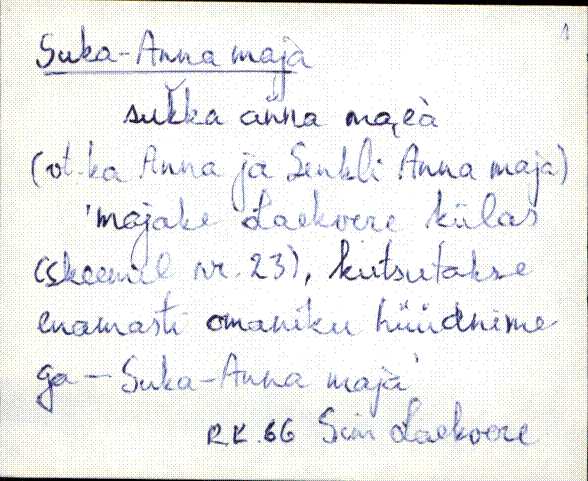 Suka-Anna maja
sukka anna maea
(vt. ka Anna ja Senkli Anna maja)
'majake Laekvere külas
(skeemil nr. 23), kutsutakse
enamasti omaniku hüüdnime-
ga — Suka-Anna maja'
R.K. 66 Sim Laekvere